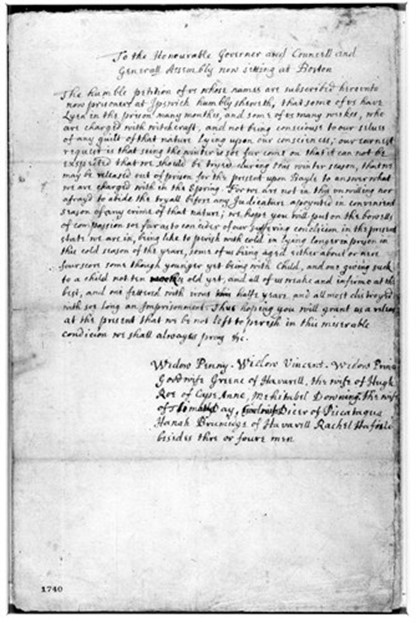 To the Honourable Governer and Councell and
Generall Assembly now sitting at Boston
The humble petition of us whose names are subscribed hereunto
now prisoners at Ipswich humbly sheweth, that some of us have
Lyen in the prison many monthes, and some of us many weekes, who
are charged with witchcraft, and not being conscious to our selves
of any guilt of that nature lying upon our consciences; our earnest
request is that seeing the winter is soe far come on that it can not be
exspected that we should be tryed during this winter season, that we
may be released out of prison for the present upon Bayle to answer what
we are charged with in the Spring. For we are not in this unwilling nor
afrayd to abide the tryall before any Judicature apoynted in convenient
season of any crime of that nature; we hope you will put on the bowells
of compassion soe far as to consider of our suffering condicion in the present
state we are in, being like to perish with cold in lying longer in prison in
this cold season of the yeare, some of us being aged either about or nere
fourscore some though younger yet being with Child, and one giving suck
to a child not ten weekes old yet, and all of us weake and infirme at the
best, and one fettered with irons this halfe yeare and all most distroyed
with soe long an Imprisonment. Thus hoping you will grant us a releas
at the present that we be not left to perish in this miserable
condicion we shall alwayes pray &c.
Widow Penny. Widow Vincent. Widow Prince
Goodwife Greene of Havarill, the wife of Hugh
Roe of Cape Anne, Mehitabel Downing. the wife
of Day, Goodwife Dicer of Piscataqua
Hanah Brumidge of Havarill Rachel Hafield
besides thre or foure men
1740